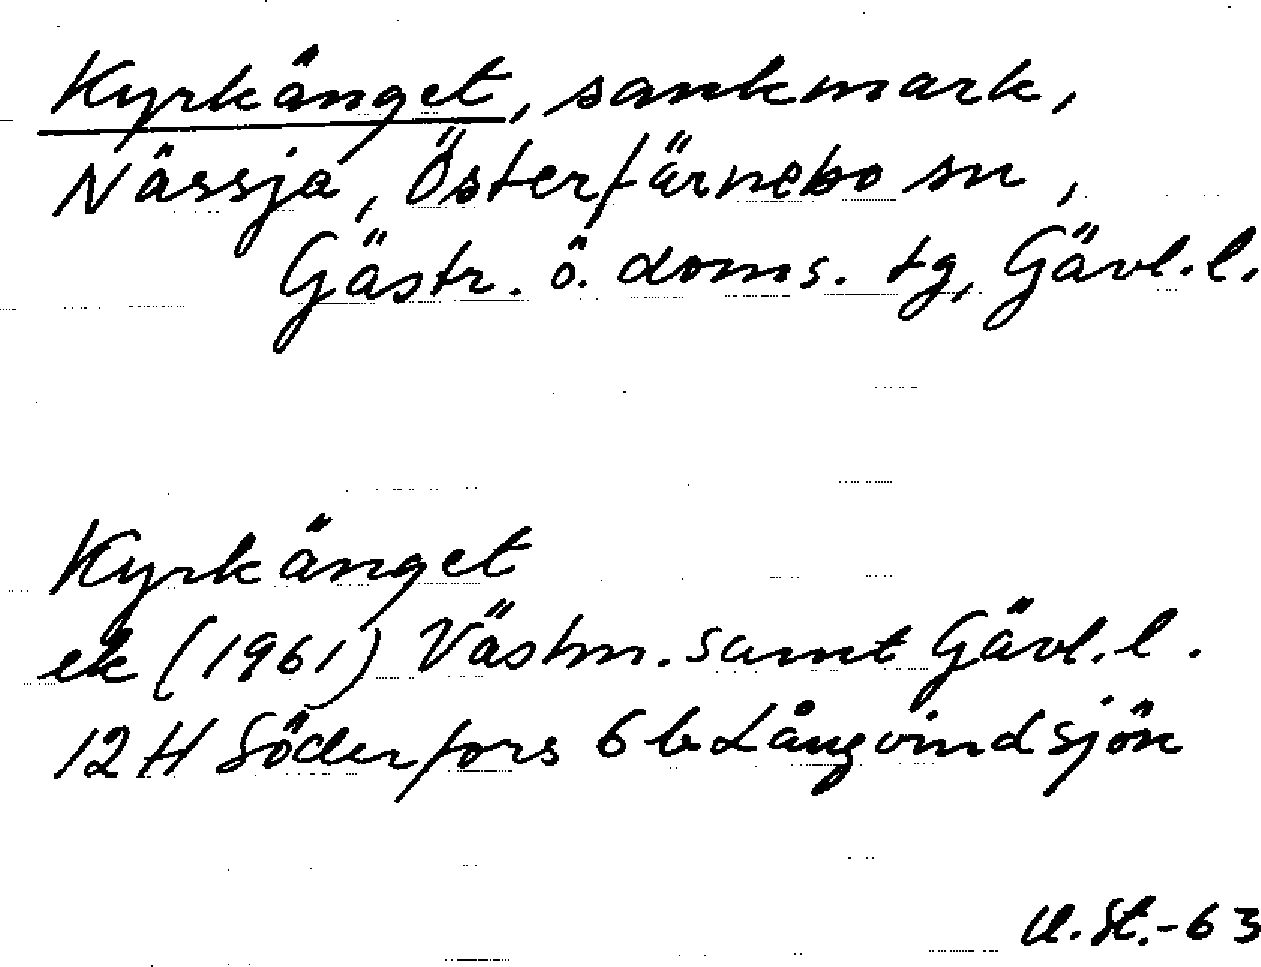 Kyrkänget, sankmark,
Nässja, Österfärnebo sn,
Gästr. ö. doms. tg, Gävl. l.
Kyrkänget
ek (1961) Västm. samt Gävl. l.
12 H Söderfors 6 b Långvindsjön
U. St.-63